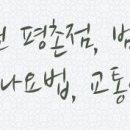 평촌점, 범
나요법, 교통